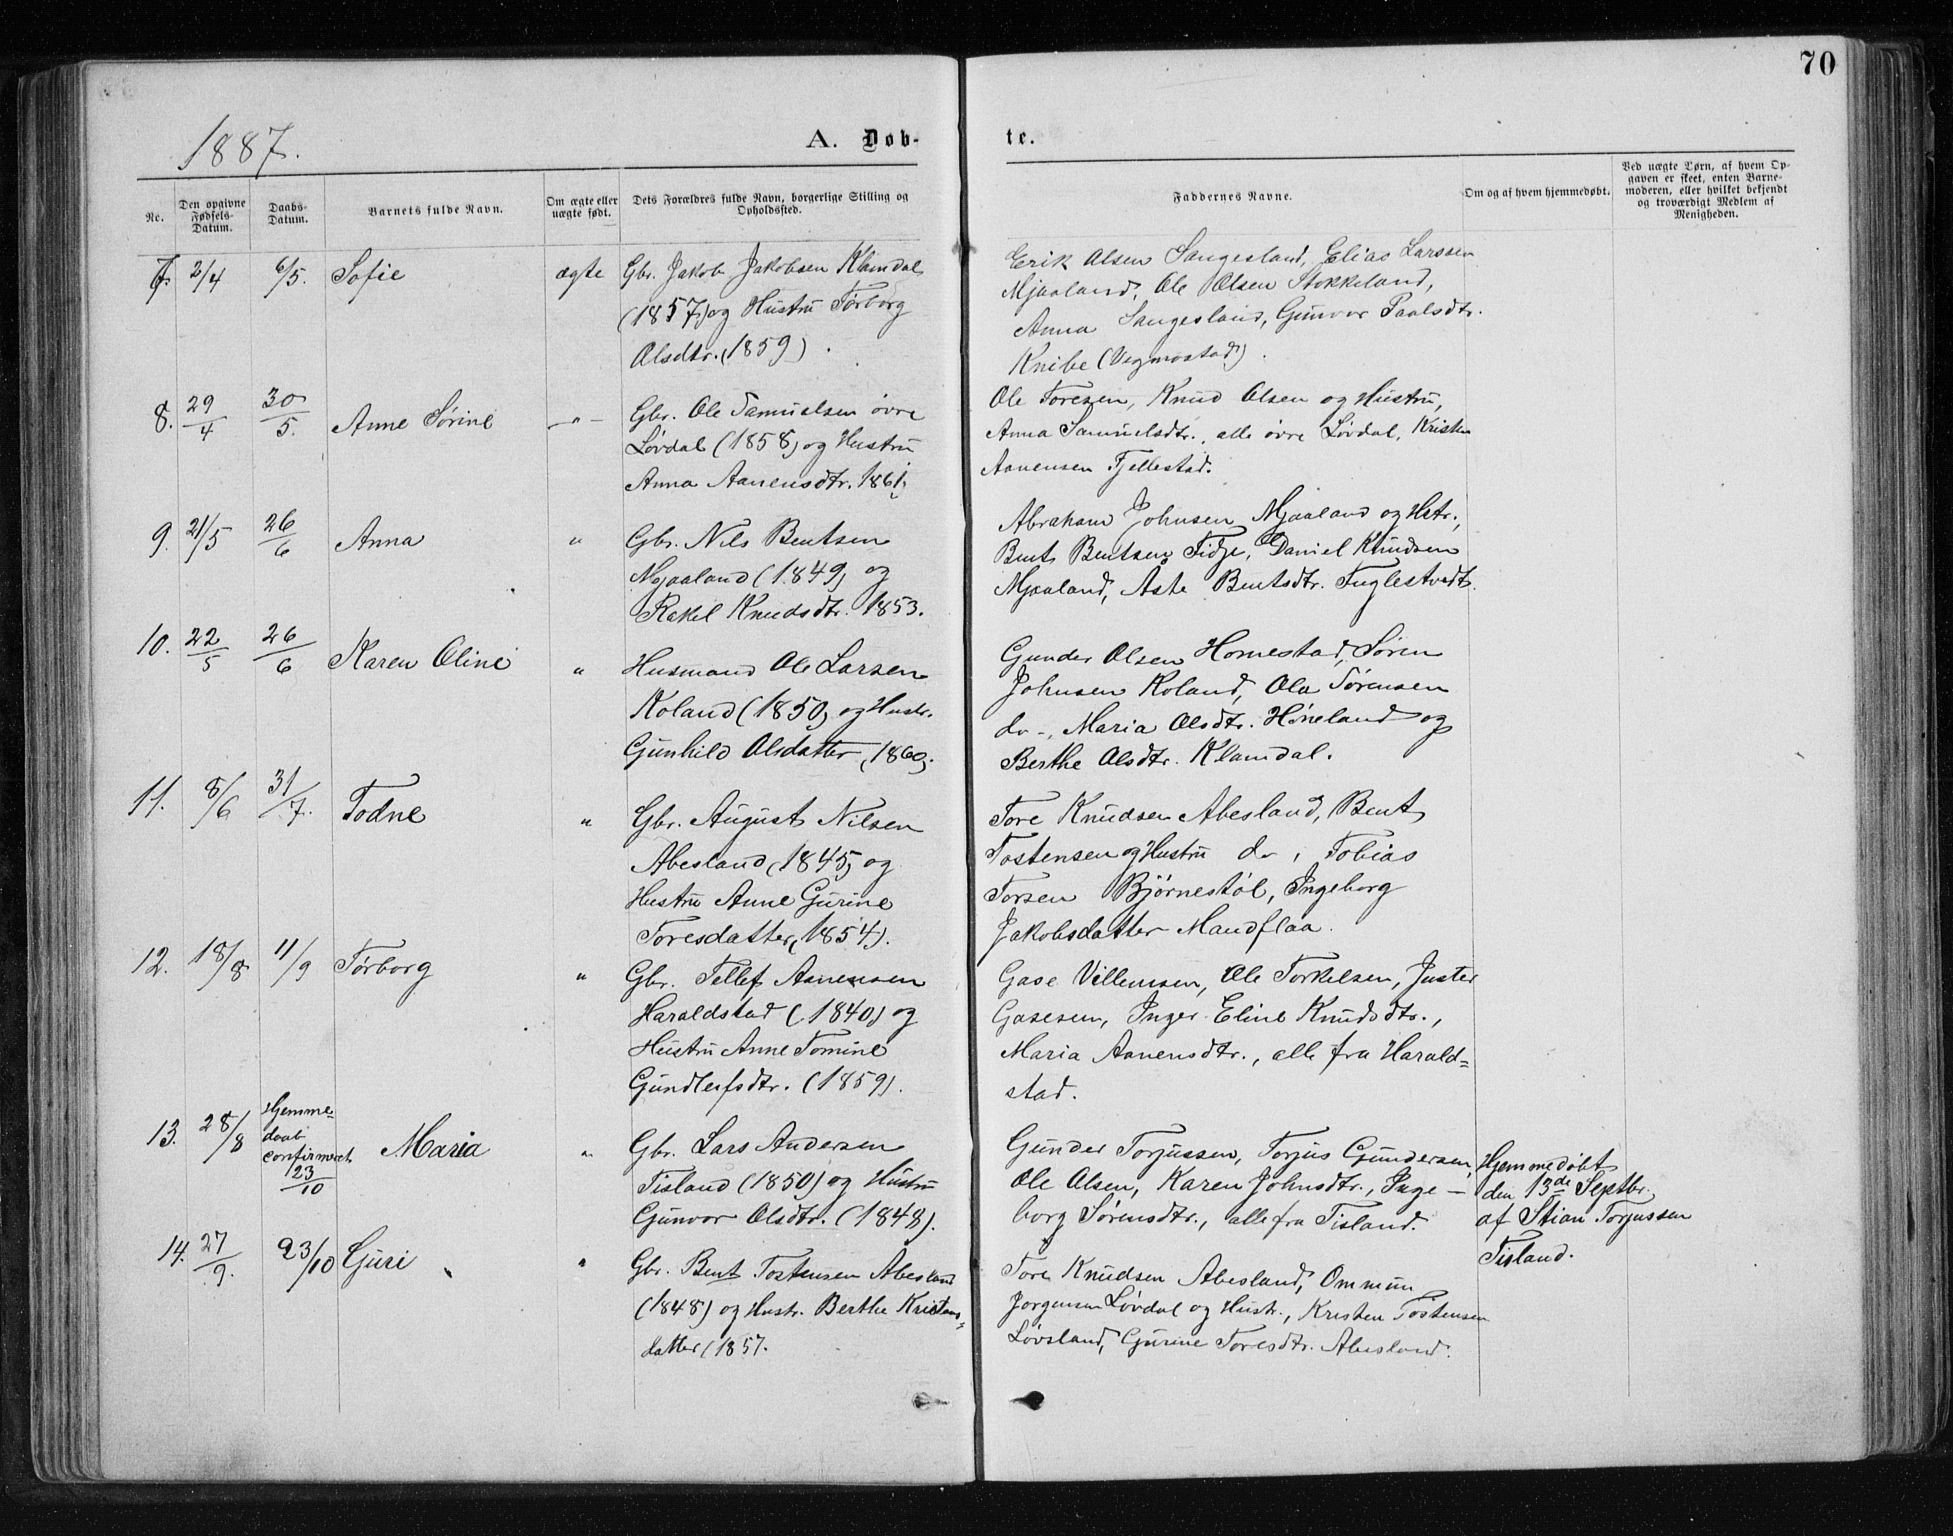 70
1887.
A. Døb-
te.
No.
Den opgivne Fødsels-Datum.
Daabs-Datum.
Barnets fulde Navn.
Om ægte eller uægte født.
Dets Forældres fulde Navn, borgerlige Stilling og Opholdssted.
Faddernes Navne.
Om og af hvem hjemmedøbt.
Ved uægte Børn, af hvem Opgaven er skeet, enten Barnemoderen, eller hvilket bekjendt og troværdigt Medlem af Menigheden.
7. 2/4 6/5. Sofie ægte
Gbr. Jakob Jakobsen Klamdal
(1857) og Hustru Tørborg
Olsdtr. (1859).
Erik Olsen Sangesland, Elias Larssen
Mjaaland, Ole Olsen Stokkeland,
Anna Sangesland, Gunvor Paalsdtr.
Knibe (Vegmostad).
8. 29/4 30/5. Anne Sørine -"-
Gbr. Ole Samuelsen øvre
Løvdal (1858) og Hustru
Anna Aanensdtr. 1861,
Ole Toresen, Knud Olsen og Hustru,
Anna Samuelsdtr., alle øvre Løvdal, Kristen
Aanensen Fjellestad.
9. 21/5 26/6 Anna "
Gbr. Nils Bentsen
Mjaaland (1849) og
Rakel Knudsdtr. 1853.
Abraham Johnsen Mjaaland og Hstr.,
Bent Bentsen Fidje, Daniel Knudsen
Mjaaland, Aste Bentsdtr. Fuglestvedt.
10. 22/5 26/6 Karen Oline "
Husmand Ole Larsen
Koland (1850) og Hustr.
Gunhild Olsdatter (1860).
Gunder Olsen Homestad, Søren
Johnsen Koland, Ola Sørensen
do -, Maria Olsdtr. Høneland og
Berthe Olsdtr. Klamdal.
11. 8/6 31/7. Todne "
Gbr. August Nilsen
Abesland (1845) og
Hustru Anne Gurine
Toresdatter (1854).
Tore Knudsen Abesland, Bent
Tostensen og Hustru do, Tobias
Torsen Bjørnestøl, Ingeborg
Jakobsdatter Mandflaa.
12. 18/8 11/9 Tørborg "
Gbr. Tellef Aanensen
Haraldstad (1840) og
Hustru Anne Tomine
Gundleifsdtr. (1859).
Gase Villemsen, Ole Torkelsen, Juster
Gasesen, Inger Eline Knudsdtr.,
Maria Aanensdtr., alle fra Harald=
stad.
13. 28/8 Hjemme-
daab
confirmeret
23/10
Maria "
Gbr. Lars Andersen
Tisland (1850) og Hustru
Gunvor Olsdtr. (1848).
Gunder Torjussen, Torjus Gundersen,
Ole Olsen, Karen Johnsdtr., Inge-
borg Sørensdtr., alle fra Tisland.
Hjemmedøbt
den 13de Septbr.
af Stian Torjussen
Tisland.
14. 27/9. 23/10 Guri "
Gbr. Bent Tostensen Abesland
(1848) og Hustr. Berthe Kristens=
datter (1857.
Tore Knudsen Abesland, Ommun
Jørgensen Løvdal og Hustr., Kristen Tostensen
Løvsland, Gurine Toresdtr. Abesland.